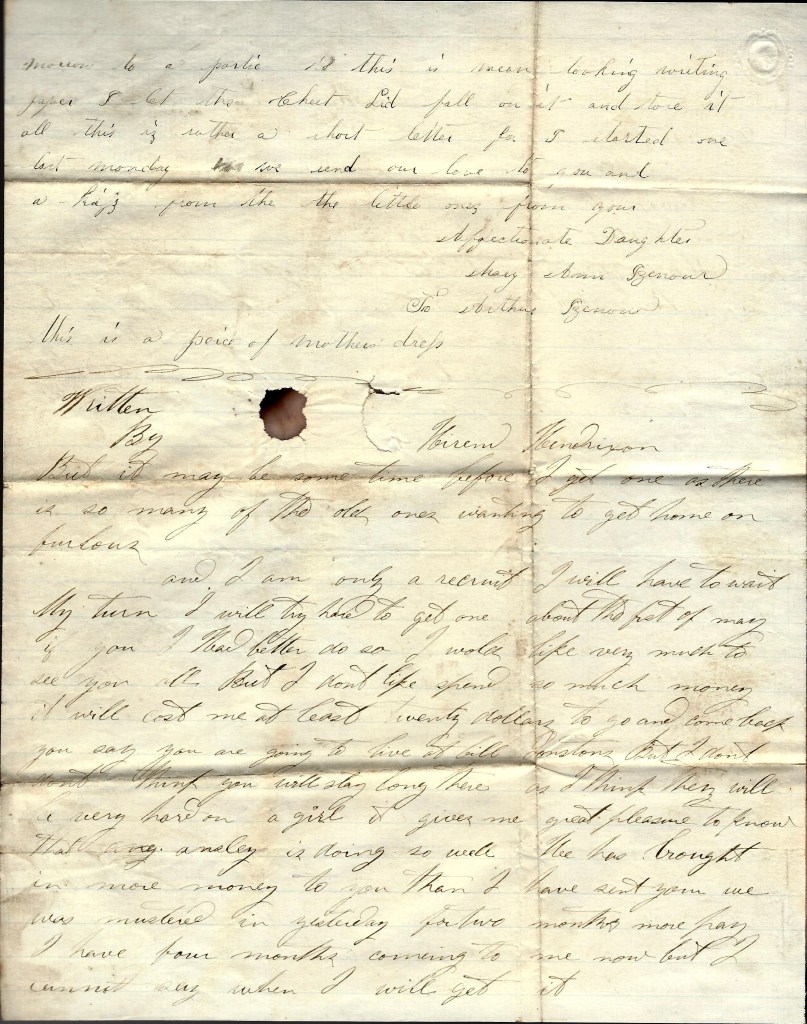 morrow to a partie this is mean looking writing
paper I let the Chest Lid fall on it and tore it
all this is rather a short letter for I started one
last monday we send our love to you and
a from the the little ones from your
Affectionate Daughter
Mary Ann
To Arthur
this is a peice of mothers dress
Written
By Hirem Hendrixon
But it may be some time before I get one as there
is so many of the old ones wanting to get home on
furlour
and I am only a recruit I will have to wait
My turn I will try hard to get one about the fst of may
if you I Had better do so I wold like very much to
see you all But I dont like spend so much money
it will cost me at least twenty dollars to go and come back
you say you are going to live at bill But I dont
dont think you will stay long there as I think they will
be very hard on a girl it gives me great pleasure to know
that ansley is doing so well He has brought
in more money to you than I have sent you we
was mustered in yesterday for two months more pay
I have four months comeing to me now but I
cannit say when I will get it